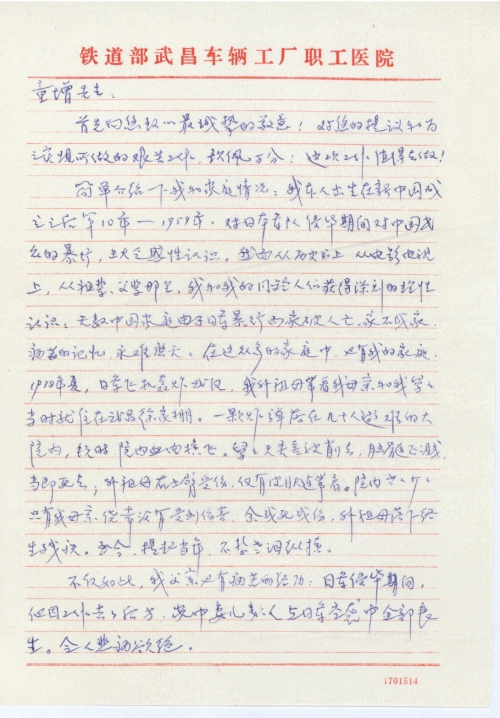 铁道部武昌车辆工厂职工医院
童增先生:
首先向您致以最诚挚的敬意!对您的提议和为
之实现所做的艰苦工作,钦佩万分!这次工作值得去做!
简单介绍一下我和家庭情况:我本人出生在新中国成
立之后第10年—1959年。对日本军队侵华期间对中国民
众的暴行,当然乏感性认识。然而从历史上、从电影电视
上,从祖辈、父辈那里,我和我的同龄人们获得深刻的理性
认识:无数中国家庭由于日军暴行而家破人亡,家不成家,
痛苦的记忆,永难磨灭。在这众多的家庭中,也有我的家庭。
1938年夏,日军飞机轰炸武汉,我外祖母带着我母亲和我舅舅
当时就住在武昌徐家棚。一颗炸弹落在几十人避难的大
院内,顿时院内血肉横飞。舅舅头盖被削去,脑髓飞溅
当即死去;外祖母右臂受伤,仅有皮肤连带着。院内
只有我母亲侥幸没有受到伤害,余或死或伤,外祖母落下终
生残疾。至今,提起当年,不禁老泪纵横。
不仅如此,我父亲也有痛苦的经历:日军侵华期间,
他因工作去了后方,家中妻儿 人在日军空袭中全部丧
生。令人悲痛欲绝。
1701514